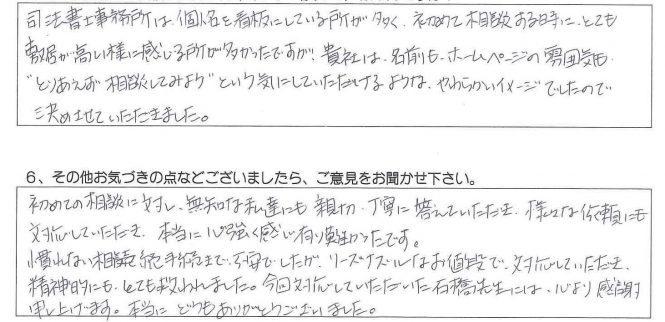 司法書士事務所は、個人名を看板にしている所が多く、初めて相談する時に、とても
敷居が高い様に感じる所が多かったですが、貴社は、名前も、ホームページの雰囲気も、
"とりあえず相談してみよう"という気にしていただけるような、やわらかいイメージでしたので
決めさせていただきました。
6、その他お気づきの点などございましたら、ご意見をお聞かせ下さい。
初めての相談に対し、無知な私達にも親切、丁寧に答えていただき、様々な依頼にも
対応していただき、本当に心強く感じ有り難かったです。
慣れない相続手続きで、不安でしたが、リーズナブルなお値段で、対応していただき、
精神的にも、とても救われました。今回対応していただいた石橋先生には、心より感謝
申し上げます。本当に どうもありがとうございました。